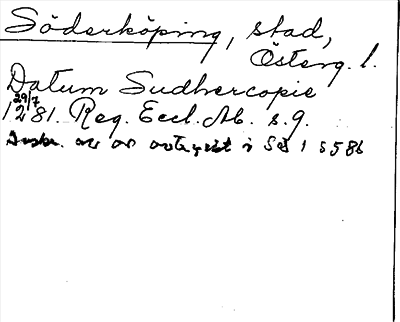 Söderköping, stad,
Österg. l.
Datum Sudhercopie
29/7
1281. Reg. Eccl. Ab. s. 9.
av avtryckt i SdS 1 s 586